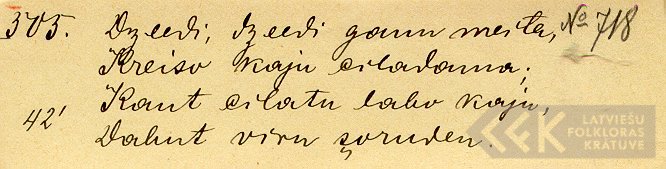 305. Dzeedi, dzeedi ganu meita, № 718
Kreiso kaju ciladama;
42' Kaut cilatu labo kaju,
Dabut viru şoruden.
LATVIEŠU
FOLKLORAS
KRĀTUVE